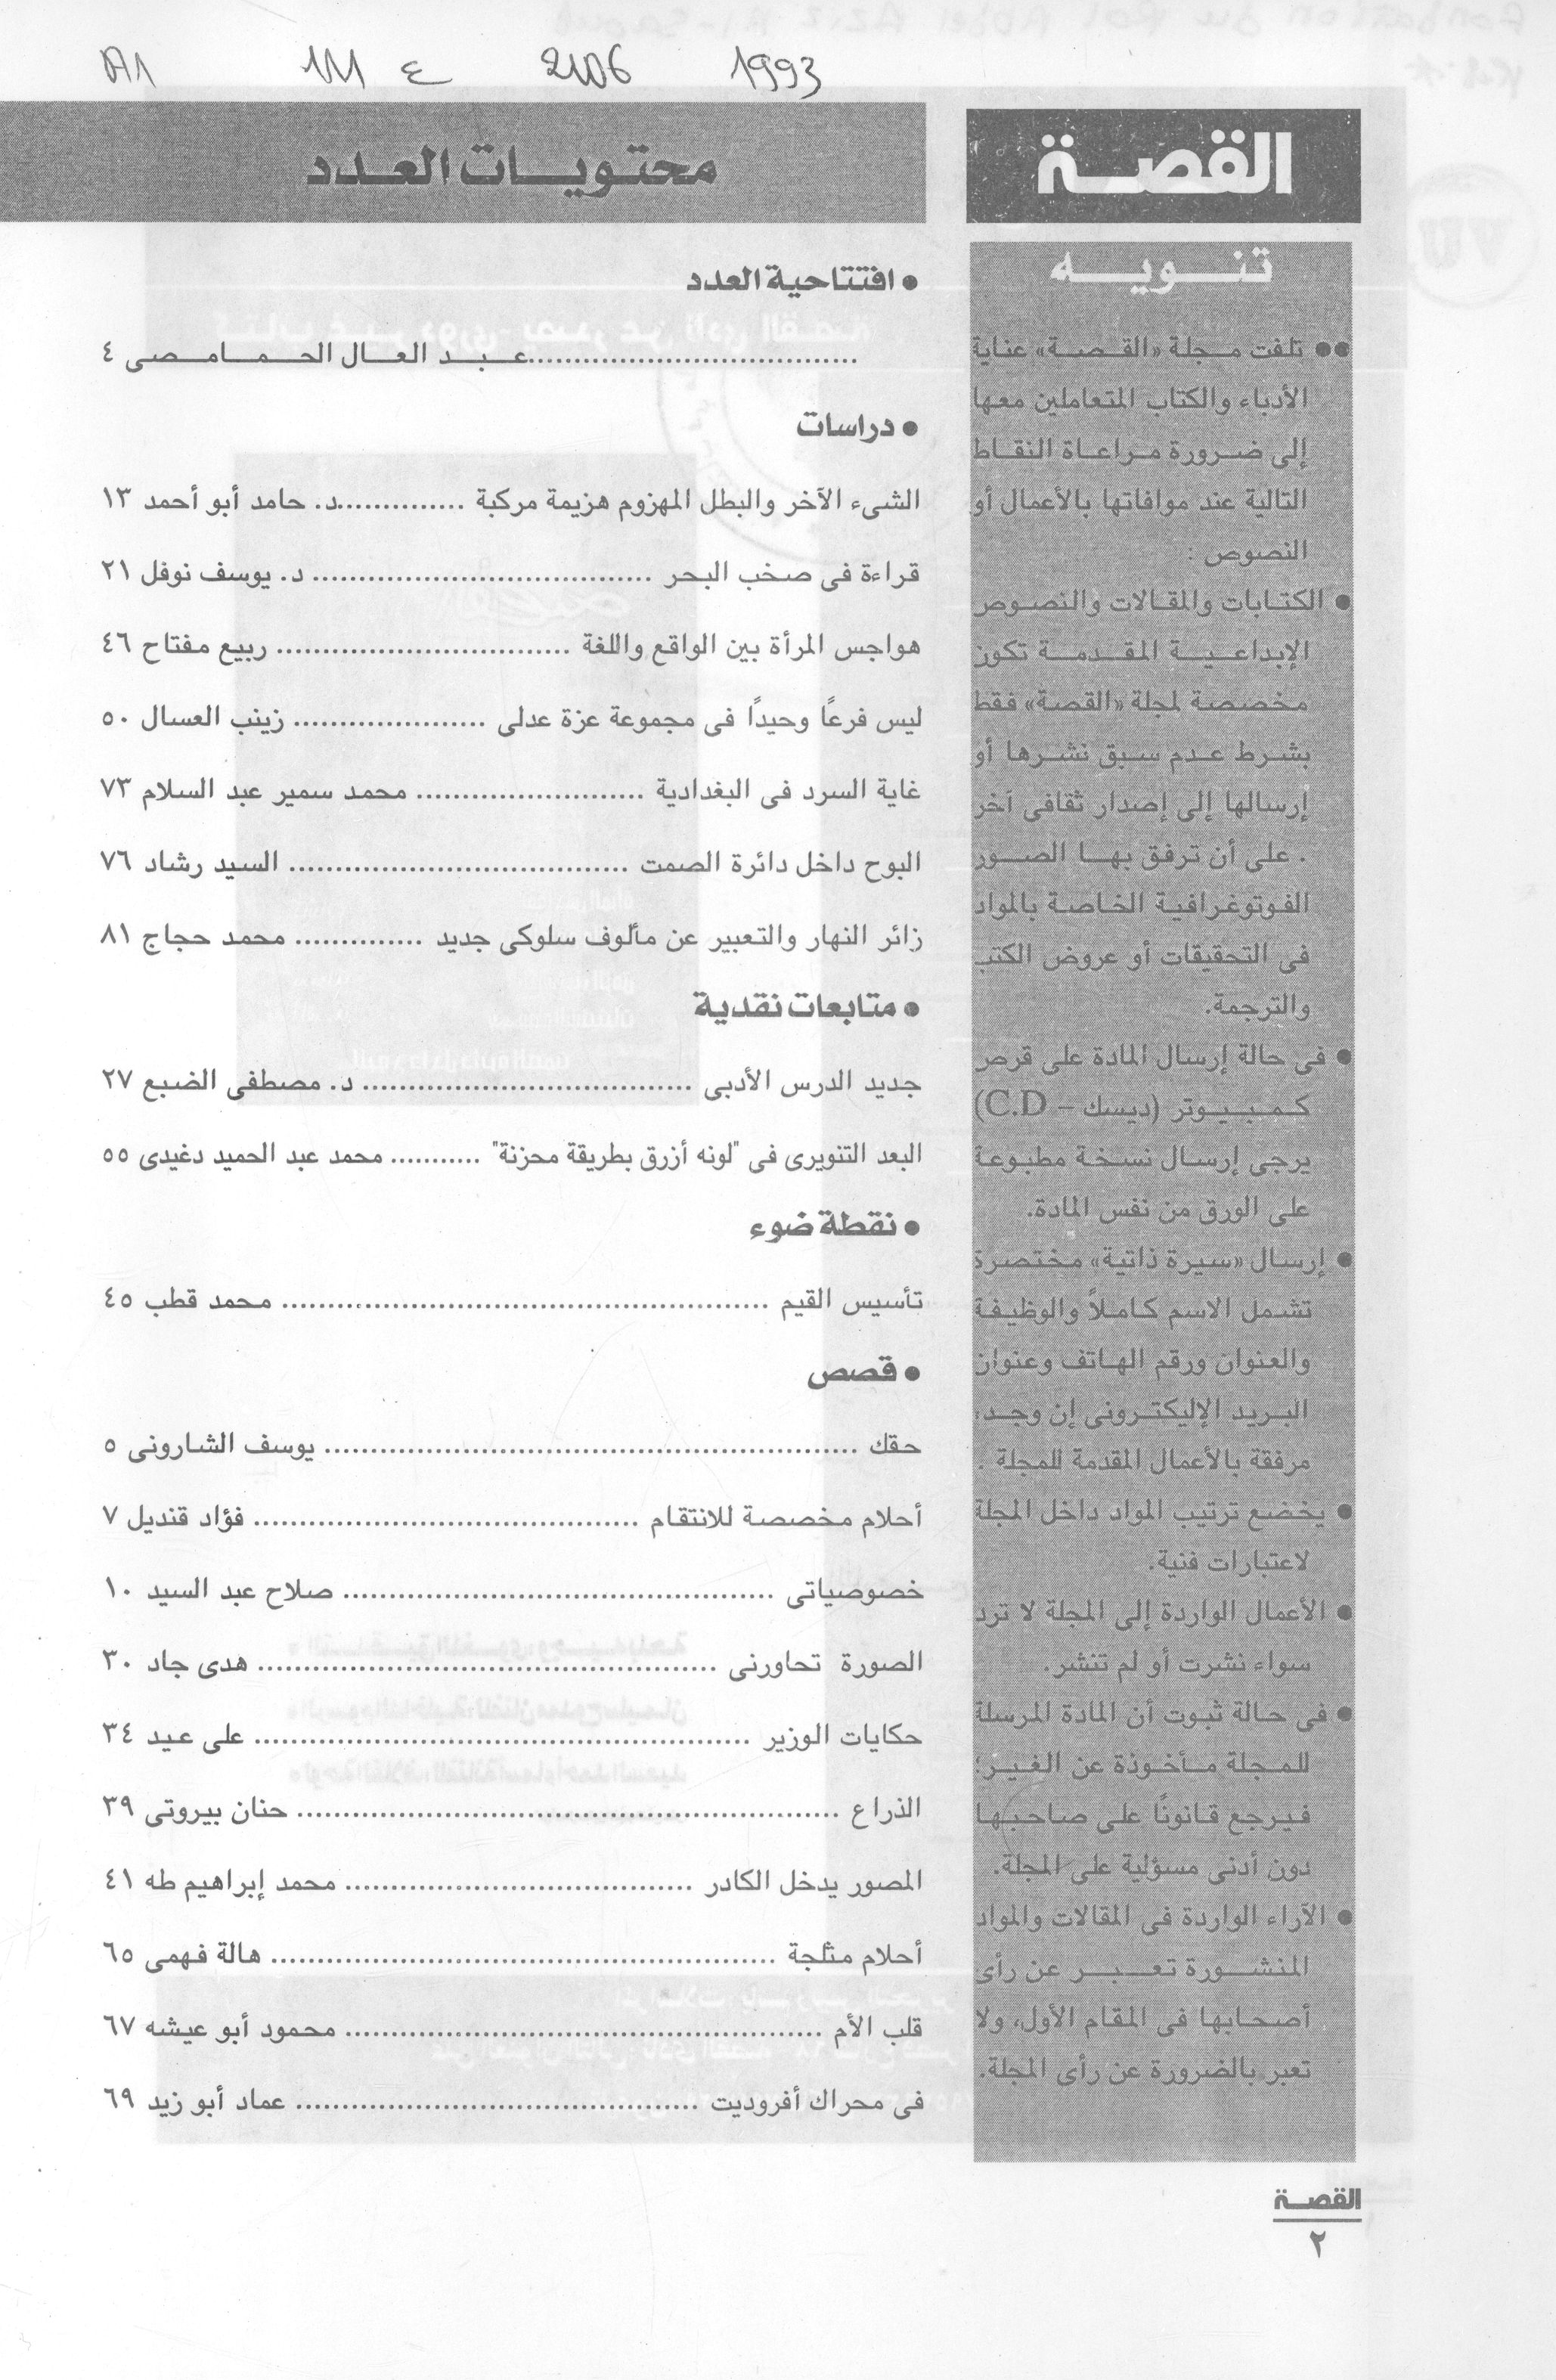 1993
القصة
تنويه
●● تلفت مجلة «القصة» عناية
الأدباء والكتاب المتعاملين معها
إلى ضرورة مراعاة النقاط
التالية عند موافاتها بالأعمال أو
النصوص :
● الكتابات والمقالات والنصوص
الإبداعية المقدمة تكون
مخصصة لمجلة «القصة» فقط
بشرط عدم سبق نشرها أو
إرسالها إلى إصدار ثقافى آخر
. على أن ترفق بها الصور
الفوتوغرافية الخاصة بالمواد
فى التحقيقات أو عروض الكتب
والترجمة.
● فى حالة إرسال المادة على قرص
كمبيوتر (ديسك – C.D)
يرجى إرسال نسخة مطبوعة
على الورق من نفس المادة.
● إرسال «سيرة ذاتية» مختصرة
تشمل الاسم كاملاً والوظيفة
والعنوان ورقم الهاتف وعنوان
البريد الإليكترونى إن وجد،
مرفقة بالأعمال المقدمة للمجلة .
● يخضع ترتيب المواد داخل المجلة
لاعتبارات فنية.
● الأعمال الواردة إلى المجلة لا ترد
سواء نشرت أو لم تنشر.
● فى حالة ثبوت أن المادة المرسلة
للمجلة مأخوذة عن الغير؛
فيرجع قانونًا على صاحبها
دون أدنى مسؤلية على المجلة.
● الآراء الواردة فى المقالات والمواد
المنشورة تعبر عن رأى
أصحابها فى المقام الأول، ولا
تعبر بالضرورة عن رأى المجلة.
محتويات العدد
● افتتاحية العدد
..................................... عبد العال الحمامصى ٤
● دراسات
الشىء الآخر والبطل المهزوم هزيمة مركبة .............. د. حامد أبو أحمد ١٣
قراءة فى صخب البحر ..................................... د. يوسف نوفل ٢١
هواجس المرأة بين الواقع واللغة ................................ ربيع مفتاح ٤٦
ليس فرعًا وحيدًا فى مجموعة عزة عدلى ..................... زينب العسال ٥٠
غاية السرد فى البغدادية ......................... محمد سمير عبد السلام ٧٣
البوح داخل دائرة الصمت ..................................... السيد رشاد ٧٦
زائر النهار والتعبير عن مألوف سلوكى جديد .............. محمد حجاج ٨١
● متابعات نقدية
جديد الدرس الأدبى .................................... د. مصطفى الضبع ٢٧
البعد التنويرى فى "لونه أزرق بطريقة محزنة" ........... محمد عبد الحميد دغيدى ٥٥
● نقطة ضوء
تأسيس القيم ..................................................... محمد قطب ٤٥
● قصص
حقك .......................................................... يوسف الشارونى ٥
أحلام مخصصة للانتقام .......................................... فؤاد قنديل ٧
خصوصياتى ............................................... صلاح عبد السيد ١٠
الصورة تحاورنى .................................................. هدى جاد ٣٠
حكايات الوزير ...................................................... على عيد ٣٤
الذراع ........................................................... حنان بيروتى ٣٩
المصور يدخل الكادر ...................................... محمد إبراهيم طه ٤١
أحلام مثلجة ....................................................... هالة فهمى ٦٥
قلب الأم .................................................... محمود أبو عيشه ٦٧
فى محراك أفروديت ............................................ عماد أبو زيد ٦٩
القصة
٢